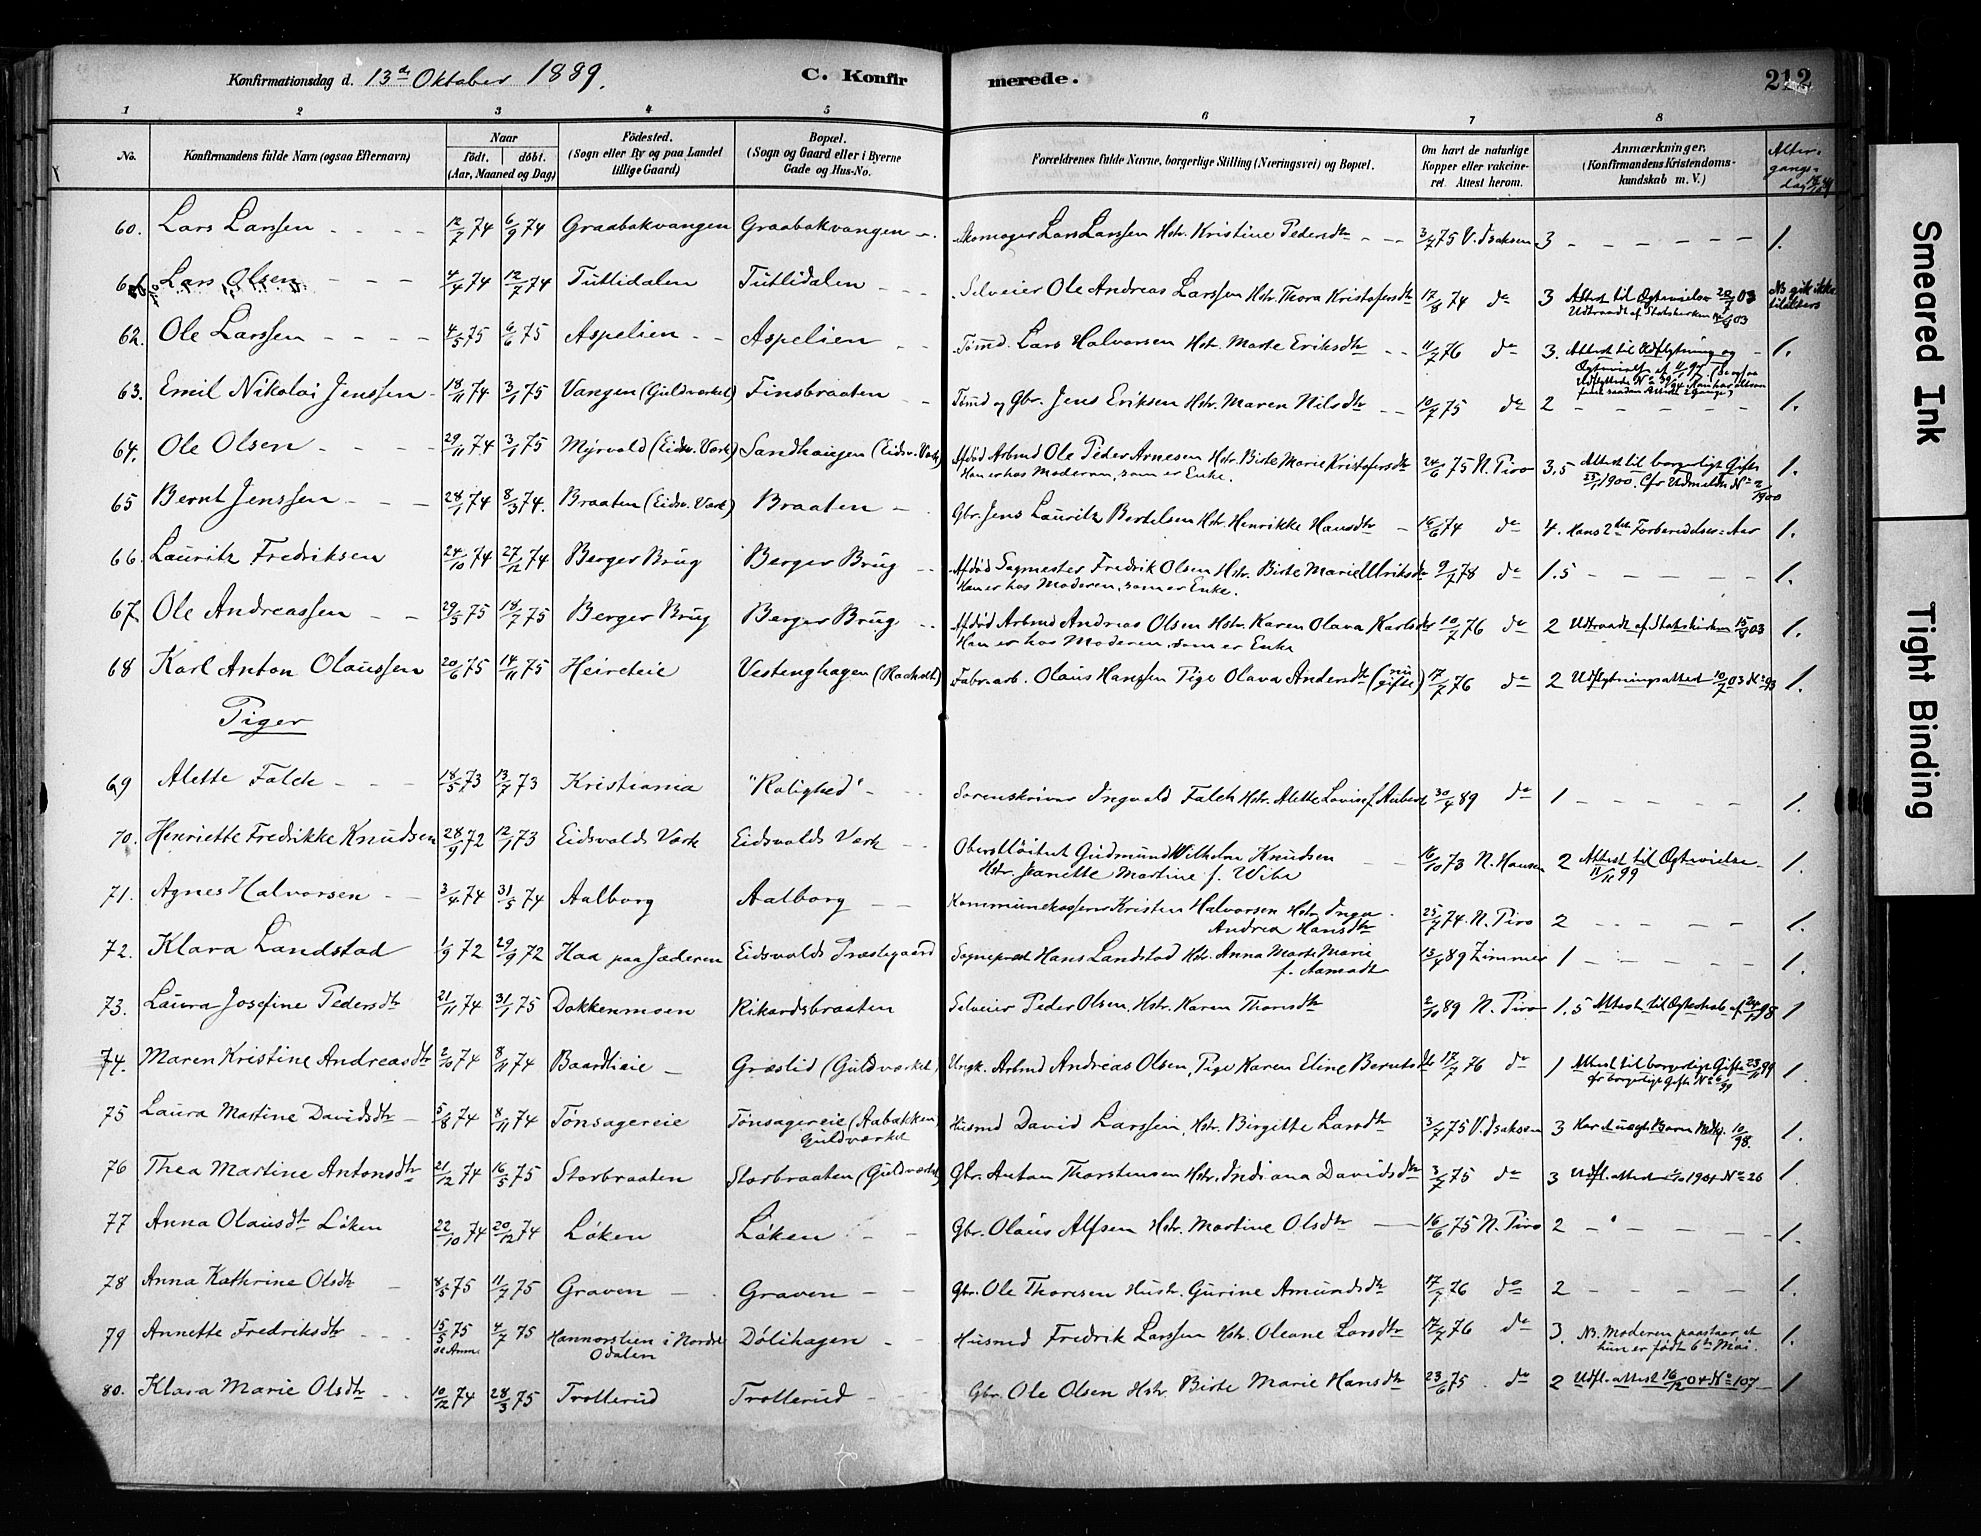 Konfirmationsdag d. 13de Oktober 1889. C. Konfirmerede. 212
1 2 3 4 5 6 7 8
No. Konfirmandens fulde Navn (ogsaa Efternavn) Naar født. døbt. (Aar, Maaned og Dag) Fødested. (Sogn eller By og paa Landet tillige Gaard) Bopæl. (Sogn og Gaard eller i Byerne Gade og Hus-No. Forældrenes fulde Navne, borgerlige Stilling (Næringsvei) og Bopæl. Om havt de naturlige Kopper eller vakcineret. Attest herom. Anmærkninger. (Konfirmandens Kristendomskundskab m. V.) Altergangsdag
60. Lars Larssen 12/7 74 6/9 74 Graabakvangen Graabakvangen Skomager Lars Larssen Hstr. Kristine Pedersdtr 3/7 75 V. Isaksen 3 1.
61. Lars Olsen 4/4 74 12/7 74 Tuttidalen Tuttidalen Selveier Ole Andreas Larssen Hstr. Thora Kristofersdtr 17/8 74 do 3 Attest til Ægtevielse 20/7 03 NB gik ikke tilalters
Udtraadt af Statskirken 03
62. Ole Larssen 4/5 75 6/6 75 Aspelien Aspelien Tømd. Lars Halvorsen Hstr. Marte Eriksdtr 11/7 76 do 3. Attest til Udflytning og 1.
Ægtevielse
63. Emil Nikolai Jenssen 18/11 74 3/1 75 Vangen (Guldværket) Finsbraaten Tømd og Gbr. Jens Eriksen Hstr. Maren Nilsdtr 10/7 75 do 2 1.
64. Ole Olsen 29/11 74 3/1 75 Myrvold (Eidsv. Værk) Sandhaugen (Eidsv. Værk) Afdød Arbmd Ole Peder Arnesen Hstr. Birte Marie Kristofersdtr 24/6 75 N. Piro 3,5 Attest til borgerligt Gifte 1.
Han er hos Moderen, som er Enke. 1900. Cfr Udmeldte No 2/1900
65 Bernt Jenssen 28/1 74 8/3 74. Braaten (Eidsv. Værk) Braaten Gbr. Jens Lauritz Bertelsen Hstr. Henrikke Hansdtr 16/6 74 do 4. Hans 2det Forberedelses-Aar 1.
66. Lauritz Fredriksen 24/10 74 27/12 74 Berger Brug Berger Brug Afdød Sagmester Fredrik Olsen Hstr. Birte Marie Ulriksdtr 9/7 78 do 1.5 1.
Han er hos Moderen, som er Enke.
67. Ole Andreassen 29/5 75 18/7 75 Berger Brug Berger Brug Afdød Arbmd Andreas Olsen Hstr. Karen Olava Karlsdtr 10/7 76 do 2 Udtraadt af Statskirken 03 1.
Han er hos Moderen, som er Enke
68 Karl Anton Olaussen 20/6 75 14/11 75 Heireteie Vestenghagen (Raaholt) Fabr.arb. Olaus Hanssen Pige Olava Andersdtr (nu gifte) 17/7 76 do 2 Udflytningsattest 10/7 03 No 93 1.
Piger
69 Alette Falch 18/5 73 13/7 73 Kristiania "Rolighed" Sorenskriver Ingvald Falch Hstr. Alette Lovise f. Aubert 30/4 89 do 1 1.
70. Henriette Fredrikke Knudsen 28/9 72 12/1 73 Eidsvolds Værk Eidsvolds Værk Oberstløitnt Gudmund Wilhelm Knudsen 16/10 73 N. Hansen 2 Attest til Ægtevielse 1.
Hstr. Jeanette Martine f. Wibe 11/11 99
71. Agnes Halvorsen 3/4 74 31/5 74 Aalborg Aalborg Kommunekasserer Kristen Halvorsen Hstr. Inga 25/7 74. N. Piro 2 1.
Andrea Hansdtr
72. Klara Landstad 1/9 72 29/9 72 Haa paa Jæderen Eidsvolds Præstegaard Sogneprest Hans Landstad Hstr. Anna Marte Marie 13/4 89 Zimmer 1 1.
f. Aamodt
73. Laura Josefine Pedersdtr 21/11 74 31/1 75 Dokkenmoen Rikardsbraaten Selveier Peder Olsen, Hstr. Karen Thorsdtr 2/10 89 N. Piro 1.5 Attest til Ægteskab af 24/1 98 1
74. Maren Kristine Andreasdtr 2/10 74 8/11 74 Baardlieie Græslid (Guldværket) Ungk. Arbmd Andreas Olsen, Pige Karen Eline Berntsdtr 17/7 76 do 1 Attest til borgerligt Gifte 23/11 99 1.
cfr borgerligt Gifte No 6/99
75 Laura Martine Davidsdtr 5/8 74 8/11 74 Tønsagereie Tønsagereie (Aabakken) Husmd David Larssen, Hstr. Birgitte Larsdtr 3/7 75 V. Isaksen 3 Har et uægte Barn 10/98. 1.
Guldværket
76 Thea Martine Antonsdtr 21/12 74 16/5 75 Storbraaten Storbraaten (Guldværket) Gbr. Anton Thorstensen Hstr. Indiana Davidsdtr 3/7 75 do 3 Udfl.attest 1901 No 26 1.
77 Anna Olausdtr Løken 22/10 74 20/12 74 Løken Løken Gbr. Olaus Alfsen Hstr. Martine Olsdtr 16/6 75 N. Piro 2 1.
78 Anna Kathrine Olsdtr 8/5 75 11/7 75 Graven Graven Gbr. Ole Thoresen Hustr. Gurine Amundsdtr 17/7 76 do 2 1.
79 Annette Fredriksdtr 15/5 75 4/7 75 Hannorstien i Nordre Dølihagen Husmd Fredrik Larssen Hstr. Oleane Larsdtr 17/7 76 do 3. NB. Moderen paastaar, at 1.
se Anm. Odalen hun er født 6te Mai.
80. Klara Marie Olsdtr 10/12 74 28/3 75 Trollerud Trollerud Gbr. Ole Olsen Hstr. Birte Marie Hansdtr 23/6 75 do 2 Udfl. attest 16/12 04 No 107 1
Smeared Ink
Tight Binding